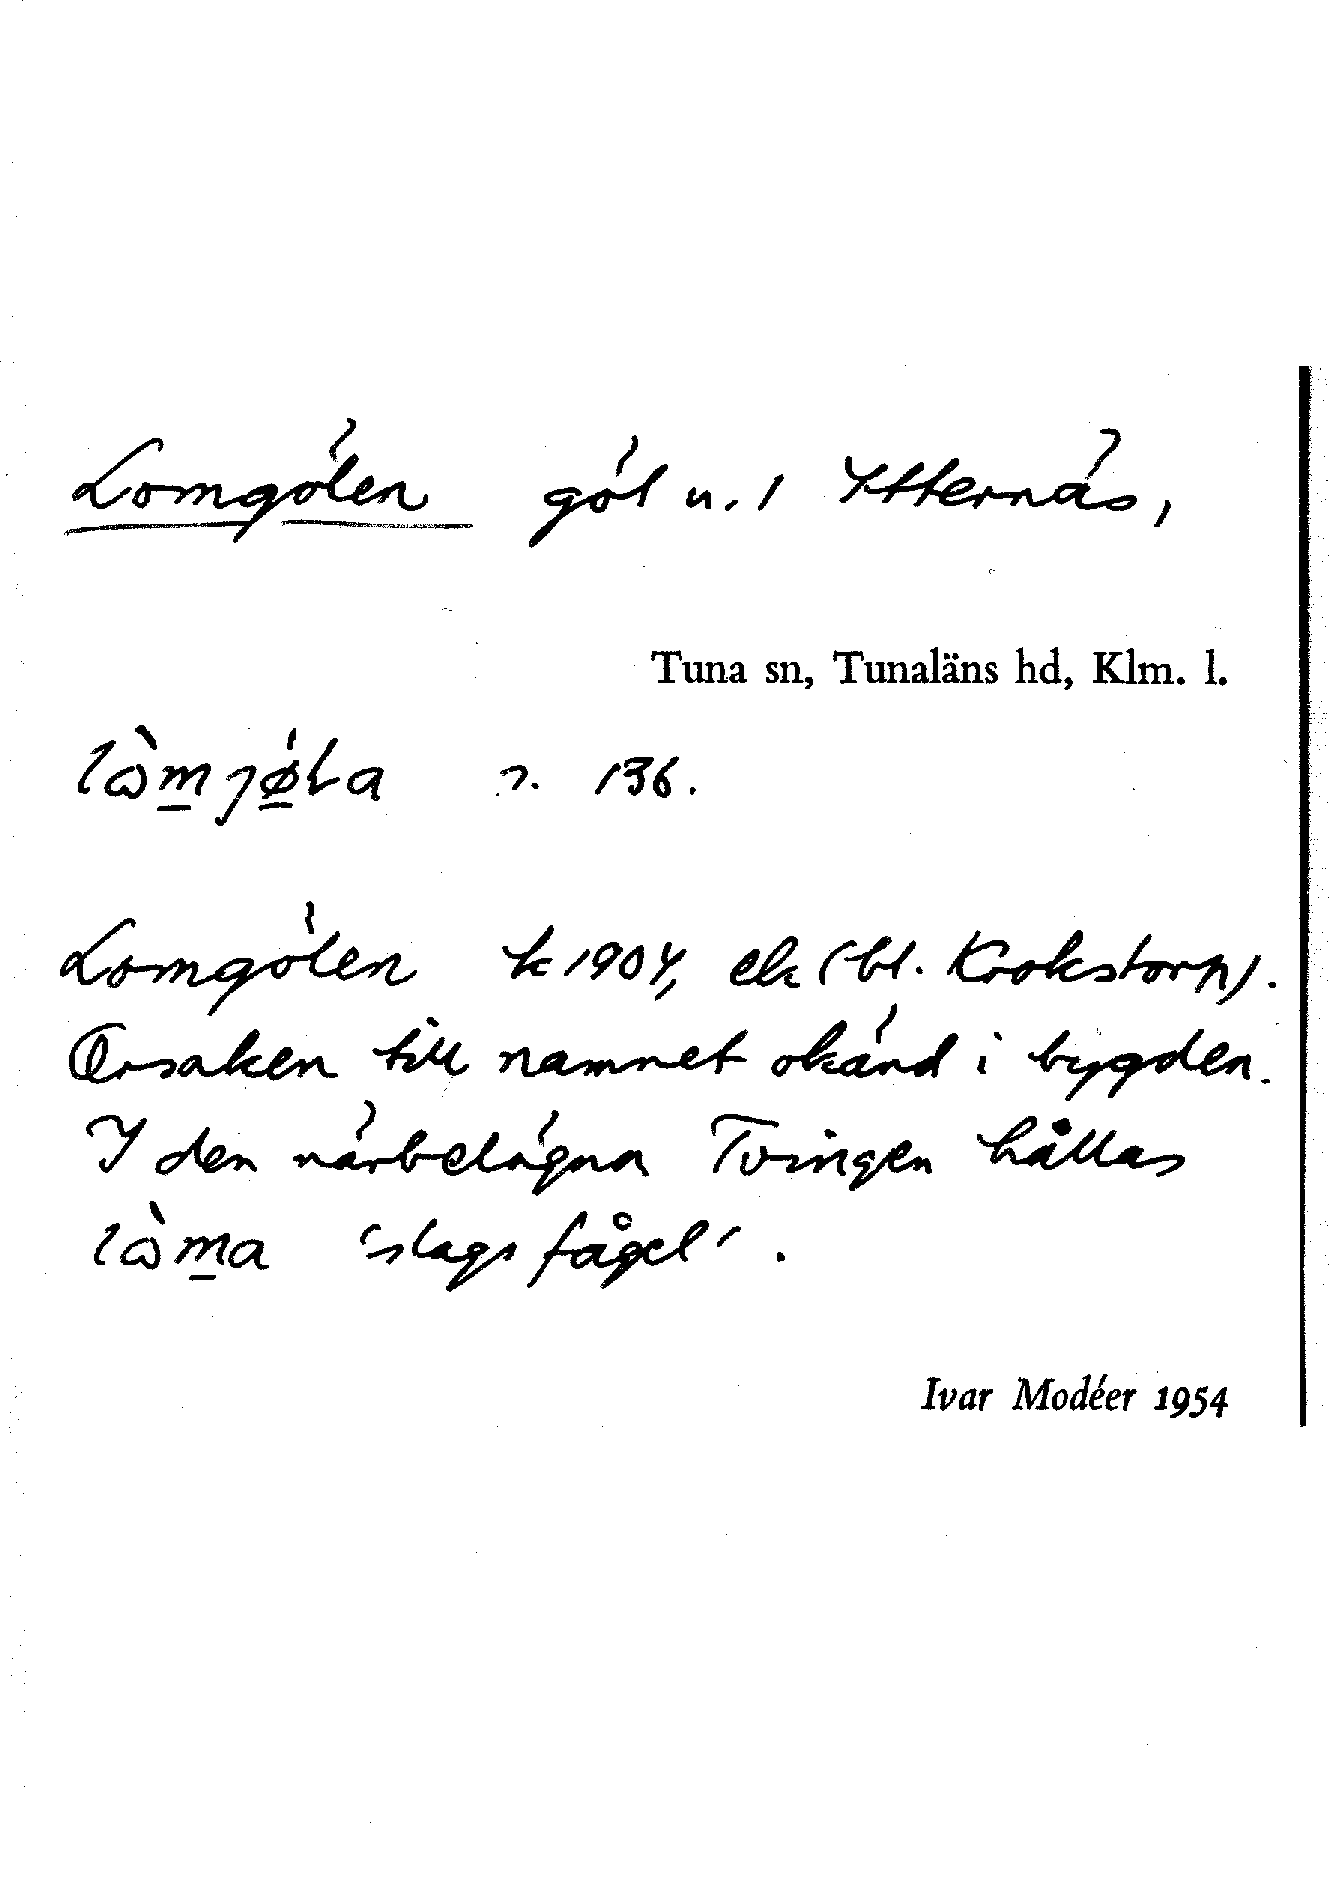 Lomgölen göl u. 1 Ytternäs,
Tuna sn, Tunaläns hd, Klm. l.
s. 136.
Lomgölen k 1904, ek (bl. Krokstorp).
Orsaken till namnet okänd i bygden.
I den närbelägna Tvingen hållas
'slags fågel'.
Ivar Modéer 1954